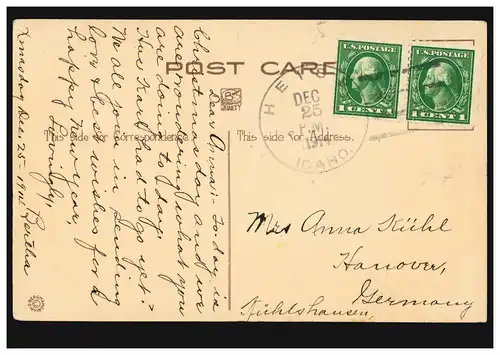 POST CARD
This side for Correspondence.
This side for Address.
Dear Anna:- To-day is
Christmas day and we
are wondering what you
are doing to-day.
Has Karl had to go yet?
We all join in sending
love & best wishes for a
happy New year,
Lovingly,
Bertha
Dec. 25 - 1914
U.S. POSTAGE
1 CENT 1
U.S. POSTAGE
1 CENT 1
DEC
25
P.M.
IDAHO.
Mrs Anna Kühl
Hanover,
Germany
Mühlshausen,